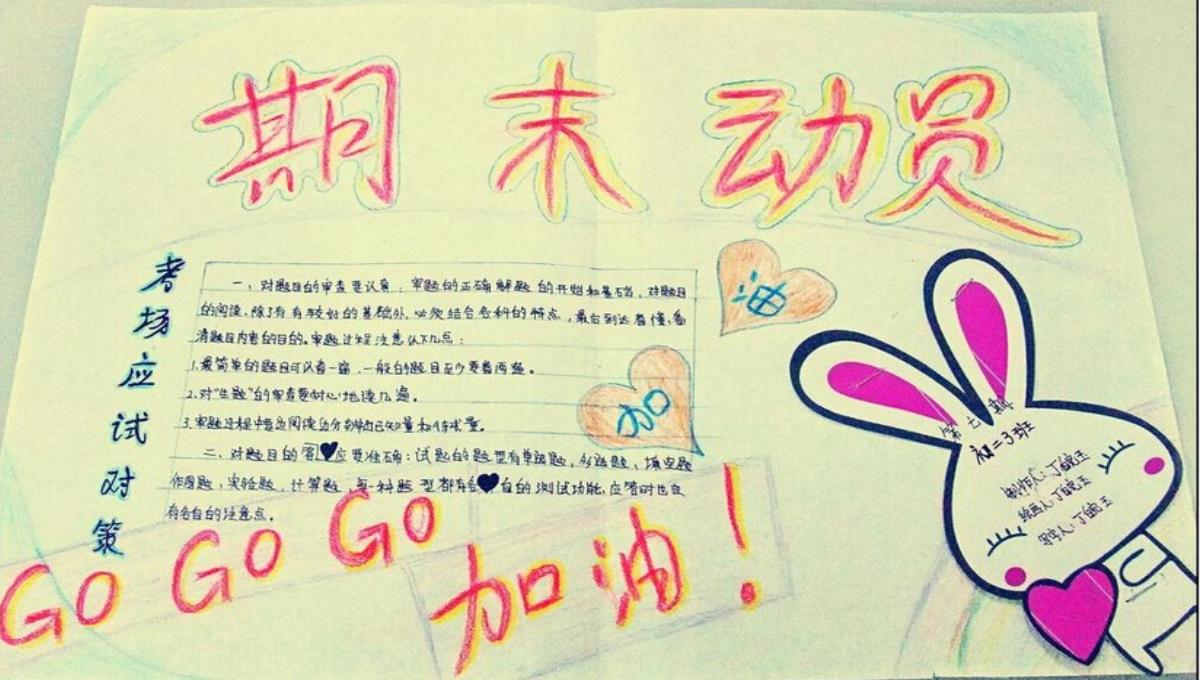 期末动员
考场应试对策
一、对题目的审查要认真：审题的正确解题的开始和基础，对题目
的阅读，除了有较好的基础外，必须结合各科的特点，最后到达看懂、看
清题目内容的目的。审题过程注意以下几点：
1.最简单的题目可以看一遍，一般的题目至少要看两遍。
2.对“生题”的审查要耐心地读几遍。
3.审题过程中要边阅读边分别出已知量和待求量。
二、对题目的答应要准确：试题的题型有单选题，多选题，填空题
作图题，实验题，计算题，每一种题型都有各自的测试功能，应答时也应
有各自的注意点。
油
加
GO GO GO
加油！
第七期
初二3班
制作人：丁
绘画人：丁
写字人：丁